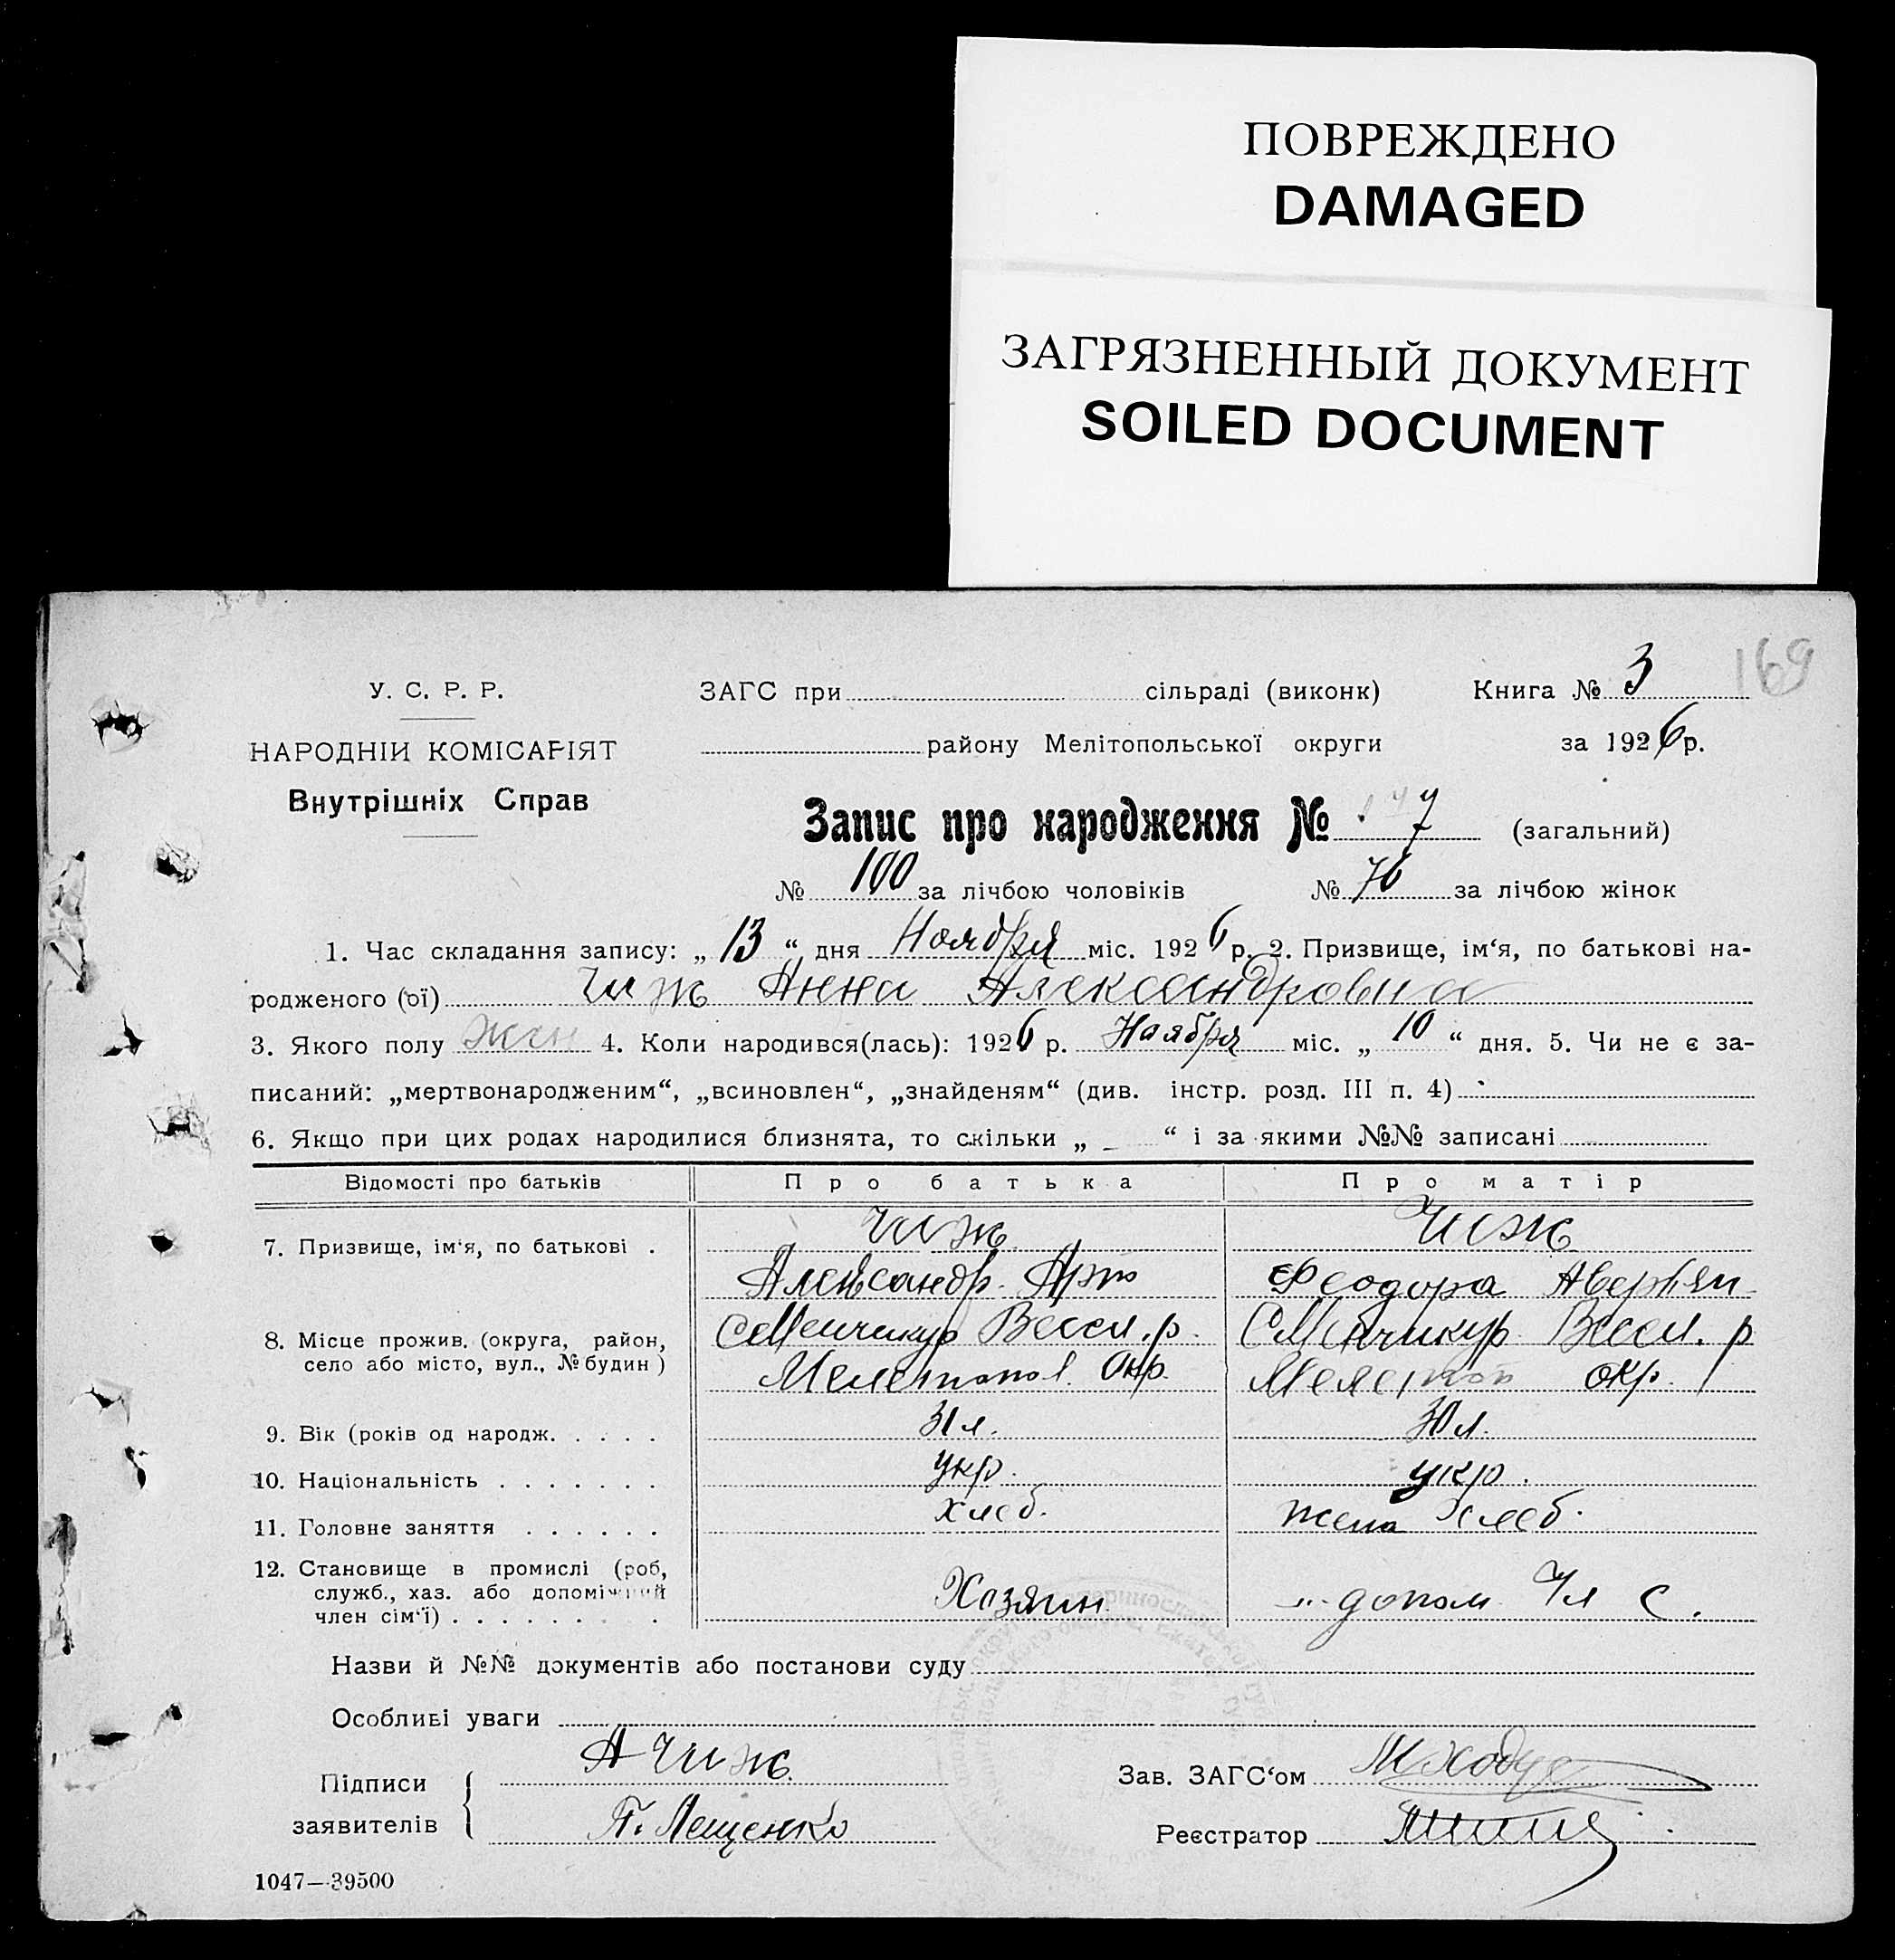 ПОВРЕЖДЕНО
DAMAGED
ЗАГРЯЗНЕННЫЙ ДОКУМЕНТ
SOILED DOCUMENT
169
У. С. Р. Р.
НАРОДНІЙ КОМІСАРІЯТ
Внутрішніх Справ
ЗАГС при сільраді (виконк) Книга № 3
району Мелітопольської округи за 1926 р.
Запис про народження № 7 (загальний)
№ 100 за лічбою чоловіків № 76 за лічбою жінок
1. Час складання запису: „ 13 “ дня Ноября міс. 1926 р. 2. Призвище, ім‘я, по батькові на-
родженого (ої) Чиж Анна Александровна
3. Якого полу жен 4. Коли народився(лась): 1926 р. Ноября міс. „ 10 “ дня. 5. Чи не є за-
писаний: „мертвонародженим“, „всиновлен“, „знайденям“ (див. інстр. розд. III п. 4)
6. Якщо при цих родах народилися близнята, то скільки „ – “ і за якими №№ записані
Відомості про батьків Про батька Про матір
7. Призвище, ім‘я, по батькові . Чиж Чиж
Александр Арт Феодора Аверьян
8. Місце прожив. (округа, район, село або місто, вул., № будин ) С Менчикур Весел. р. С Менчикур Весел. р
Мелетопол. Окр. Мелетоп окр.
9. Вік (років од народж. . . . . 31 л. 30 л.
10. Національність . . . . . . . укр. укр.
11. Головне заняття . . . . . . хлеб. жена хлеб.
12. Становище в промислі (роб, служб., хаз. або допоміжний член сім‘ї) . . . . . . . . Хозяин допом Чл С.
Назви й №№ документів або постанови суду
Особливі уваги
Підписи заявителів { А Чиж Зав. ЗАГС‘ом
П. Лещенко Реєстратор
1047—39500